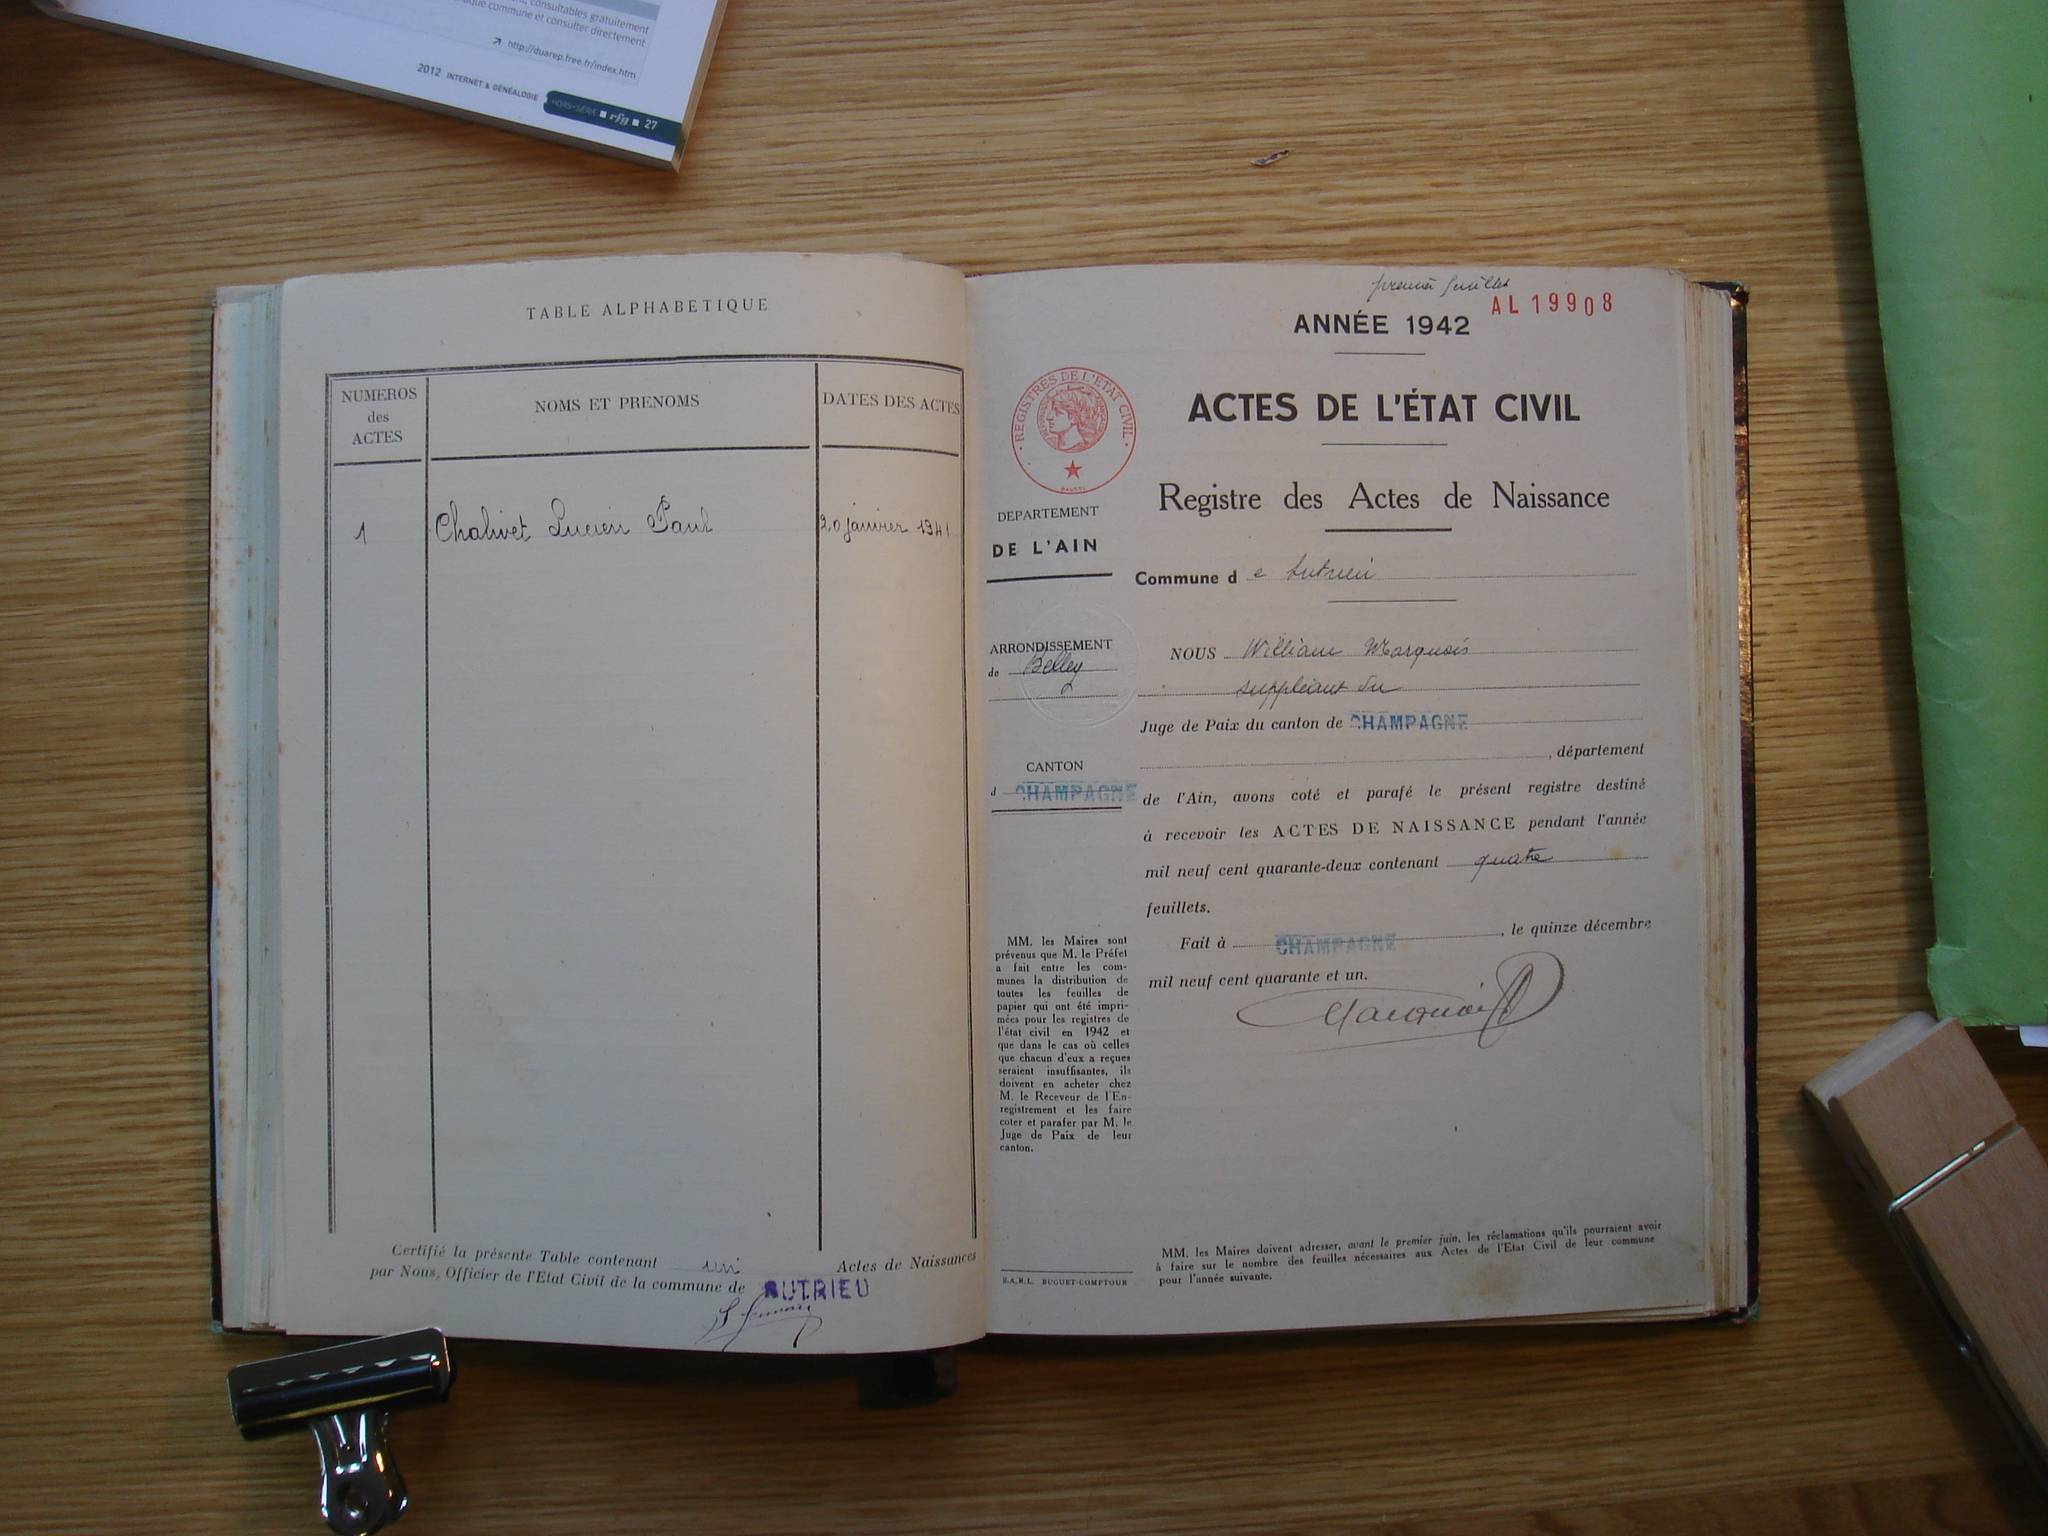 , consultables gratuitement
que commune et consulter directement
http://duarep.free.fr/index.htm
2012 INTERNET & GÉNÉALOGIE HORS-SÉRIE ■ rfg ■ 27
TABLE ALPHABETIQUE
NUMEROS
des
ACTES
NOMS ET PRENOMS
DATES DES ACTES
1 Chalivet Lucien Paul 20 janvier 1941
Certifié la présente Table contenant un Actes de Naissances
par Nous, Officier de l'Etat Civil de la commune de SUTRIEU
premier feuillet
AL 19908
ANNÉE 1942
REGISTRES DE L'ETAT CIVIL
ACTES DE L'ÉTAT CIVIL
Registre des Actes de Naissance
DEPARTEMENT
DE L'AIN
Commune d e Sutrieu
ARRONDISSEMENT
de Belley
NOUS William Marquois
suppléant du
Juge de Paix du canton de CHAMPAGNE
, département
CANTON
d CHAMPAGNE
de l'Ain, avons coté et parafé le présent registre destiné
à recevoir les ACTES DE NAISSANCE pendant l'année
mil neuf cent quarante-deux contenant quatre
feuillets.
Fait à CHAMPAGNE, le quinze décembre
mil neuf cent quarante et un.
Marquois
MM. les Maires sont
prévenus que M. le Préfet
a fait entre les com-
munes la distribution de
toutes les feuilles de
papier qui ont été impri-
mées pour les registres de
l'état civil en 1942 et
que dans le cas où celles
que chacun d'eux a reçues
seraient insuffisantes, ils
doivent en acheter chez
M. le Receveur de l'En-
registrement et les faire
coter et parafer par M. le
Juge de Paix de leur
canton.
S.A.R.L. BUGUET-COMPTOUR
MM. les Maires doivent adresser, avant le premier juin, les réclamations qu'ils pourraient avoir
à faire sur le nombre des feuilles nécessaires aux Actes de l'Etat Civil de leur commune
pour l'année suivante.